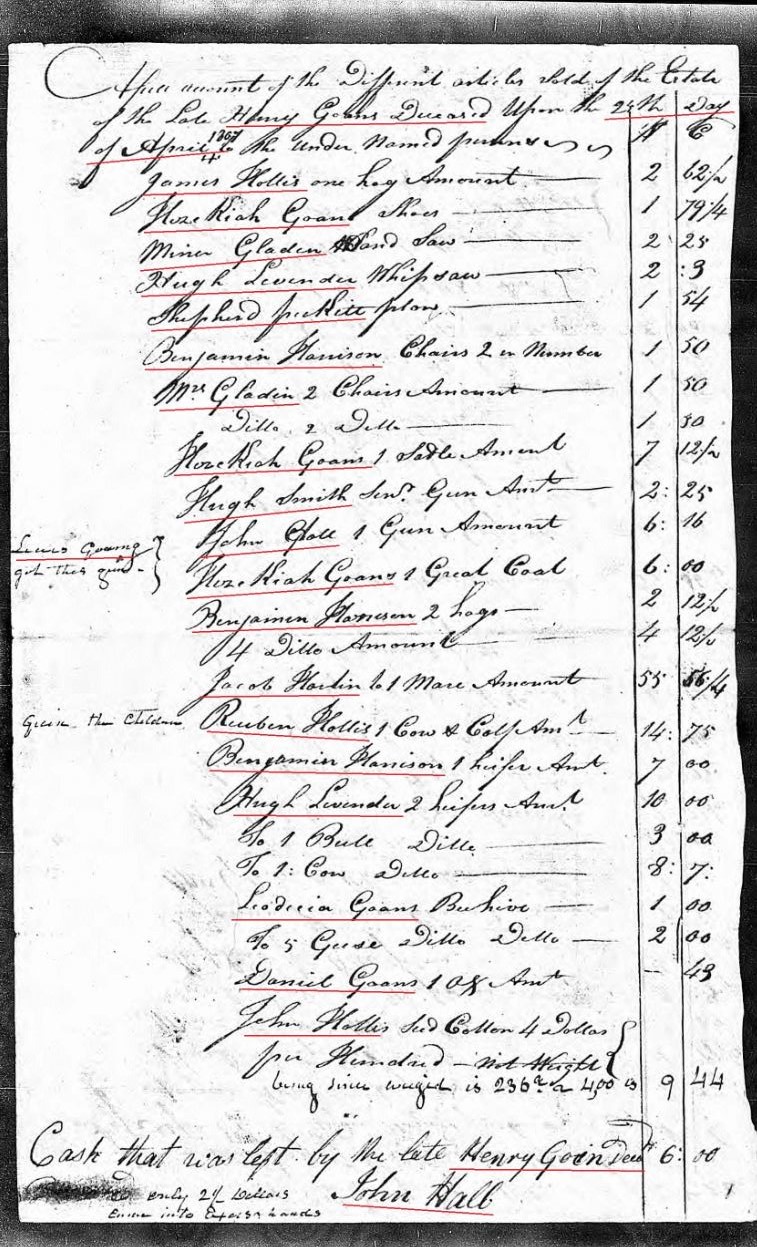 A full account of the Different articles Sold of the Estate
of the Late Henry Goans Deceased Upon the 25th Day
of April 1807 to the under Named persons $ C
James Hollis one hog Amount 2 62 1/2
HezeKiah Goans Shoes 1 79 1/4
Miner Gladen Hand Saw 2 25
Hugh Levender Whipsaw 2 :3
Shepherd pickitt plow 1 54
Benjamin Harrison Chairs 2 in Number 1 50
Mrs Gladin 2 Chairs Amount 1 50
Ditto 2 Ditto 1 50
HezeKiah Goans 1 Sadle Amount 7 12 1/2
Hugh Smith Senr Gun Amt 2: 25
John 1 Gun Amount 6: 16
Lewis Goaing
got this gun
HezeKiah Goans 1 Great Coat 6: 00
Benjamin Harrison 2 hogs 2 12 1/2
4 Ditto Amount 4 12 1/2
Jacob Harlin to 1 Mare Amount 55 56 1/4
the Children
Reuben Hollis 1 Cow & Calf Amt 14: 75
Benjamin Harrison 1 heifer Amt. 7 00
Hugh Levender 2 heifers Amt 10 00
To 1 Bull Ditto 3 00
To 1: Cow Ditto 8: 7:
Leodicia Goans Beehive 1 00
To 5 Geese Ditto Ditto 2 00
Daniel Goans 1 Ox Amt - 43
John Hollis Seed Cotton 4 Dollars
per Hundred - Not Weight
being since weighed is 236 a 4,00 is 9 44
Cash that was left by the late Henry Goin Decd 6: 00
only 2 Dollars John Hall
came into hands